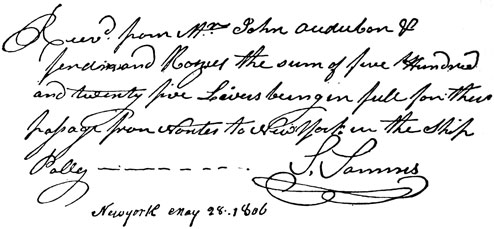 Recvd. from Mr. John Audubon &
Ferdinand Rozier the sum of five Hundred
and twenty five Livers being in full for their
pasage from Nantes to New York in the Ship
Polly — — — — — — — S. Sammis
Newyork May 28. 1806